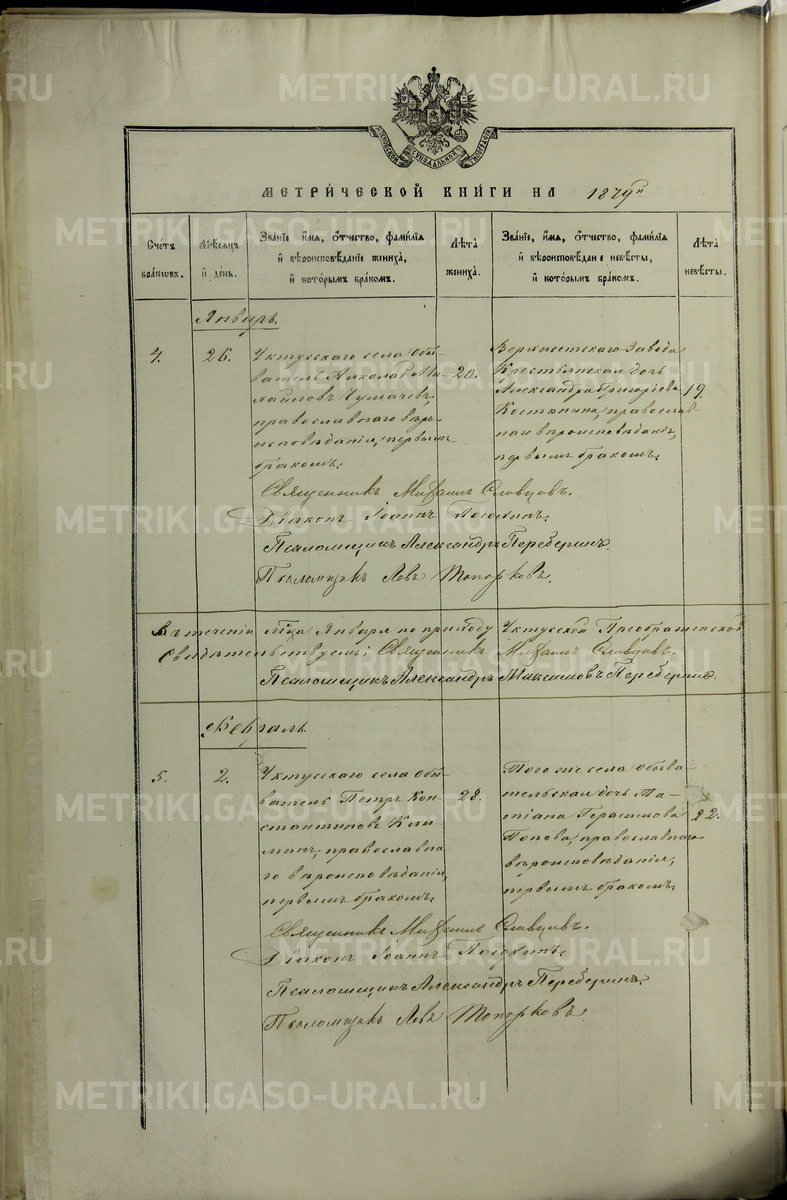 МЕТРИ́ЧЕСКОЙ КНИ́ГИ НА 1879й
Сче́тъ бра́ковъ.
Мѣ́сяцъ и҆ де́нь.
Зва́нїе и҆́мя, ѻ҆́тчество, фами́лїя и҆ вѣроисповѣ́данїе жениха̀, и҆ кото́рымъ бра́комъ.
Лѣ́та жениха̀.
Зва́нїе, и҆́мя, ѻ҆́тчество, фами́лїя и҆ вѣроисповѣ́данїе невѣ́сты, и҆ кото́рымъ бра́комъ.
Лѣ́та невѣ́сты.
Январь.
4.
26.
Уктусскаго села обы-
ватель Николай Ми-
хайловъ Чумачевъ,
православнаго вѣро-
исповѣданія, первымъ
бракомъ.
20.
Верхисетскаго Завода
Крестьянская дочь
Александра Григорьева
Костыгина, православ-
наго вѣроисповѣданія,
первымъ бракомъ.
19.
Священникъ Михаилъ Словцовъ.
Діаконъ Іоаннъ
Псаломщикъ Александръ Переберинъ.
Псаломщикъ Левъ Топорковъ.
Въ теченіи м҃ца Января по приходу Уктусской Преображенской
свидѣтельствуемъ: Священникъ Михаилъ Словцовъ.
Псаломщикъ Александръ Максимовъ Переберинъ.
Февраль.
5.
2.
Уктусскаго села обы-
ватель Петръ Кон-
стантиновъ
православна-
го вѣроисповѣданія,
первымъ бракомъ.
28.
Того же села обыва-
тельская дочь Та-
тіана Герасимова
Попова, православнаго
вѣроисповѣданія,
первымъ бракомъ.
22.
Священникъ Михаилъ Словцовъ.
Діаконъ Іоаннъ
Псаломщикъ Александръ Переберинъ.
Псаломщикъ Левъ Топорковъ.
METRIKI.GASO-URAL.RU